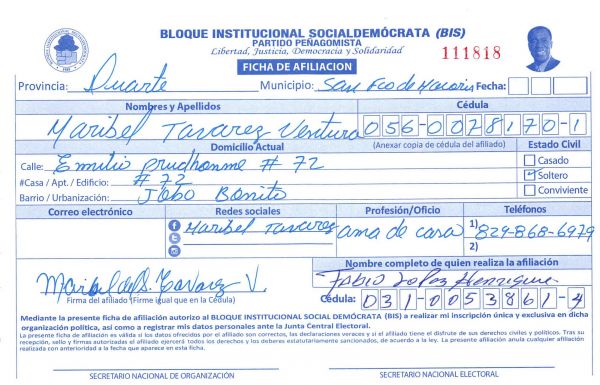 BLOQUE INSTITUCIONAL SOCIALDEMÓCRATA (BIS)
PARTIDO PEÑAGOMISTA
Libertad, Justicia, Democracia y Solidaridad
111818
FICHA DE AFILIACION
Provincia: Duarte Municipio: San Fco de Macoris Fecha:
Nombres y Apellidos Cédula
Maribel Tavarez Ventura 056-0078170-1
Domicilio Actual (Anexar copia de cédula del afiliado) Estado Civil
Calle: Emilio prudhomme # 72 Casado
#Casa / Apt. / Edificio: # 72 Soltero
Barrio / Urbanización: Jobo Bonito Conviviente
Correo electrónico Redes sociales Profesión/Oficio Teléfonos
Maribel Tavarez ama de casa 1) 829-868-6979
2)
Nombre completo de quien realiza la afiliación
Tavarez V. Fabio Lopez
Firma del afiliado (Firme igual que en la Cédula) Cédula: 031-0053861-4
Mediante la presente ficha de afiliación autorizo al BLOQUE INSTITUCIONAL SOCIAL DEMÓCRATA (BIS) a realizar mi inscripción única y exclusiva en dicha
organización política, así como a registrar mis datos personales ante la Junta Central Electoral.
La presente ficha de afiliación es válida si los datos ofrecidos por el afiliado son correctos, las declaraciones veraces y si el afiliado tiene el disfrute de sus derechos civiles y políticos. Tras su
recepción, sello y firmas autorizadas el afiliado ejercerá todos los derechos y los deberes estatutariamente sancionados, de acuerdo a la ley. La presente afiliación anula cualquier afiliación
realizada con anterioridad a la fecha que aparece en esta ficha.
SECRETARIO NACIONAL DE ORGANIZACIÓN SECRETARIO NACIONAL ELECTORAL